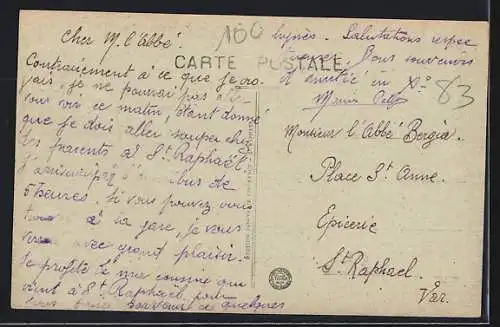 Cher M. l'Abbé.
Contrairement à ce que je cro-
yais, je ne pourrai pas aller
vous voir ce matin, étant donné
que je dois aller souper chez
des parents à St Raphaël
J'arriverai par bus de
5 heures. Si vous pouvez vous
à la gare, je vous
verrai avec grand plaisir.
Je profite de une cousine qui
vient à St Raphaël pour
vous faire parvenir ce quelques
100
CARTE POSTALE
lignes. Salutations respec
Bons souvenirs
et amitié en
83
Monsieur l'Abbé Bergia.
Place St Anne.
Epicerie
St Raphael.
Var.